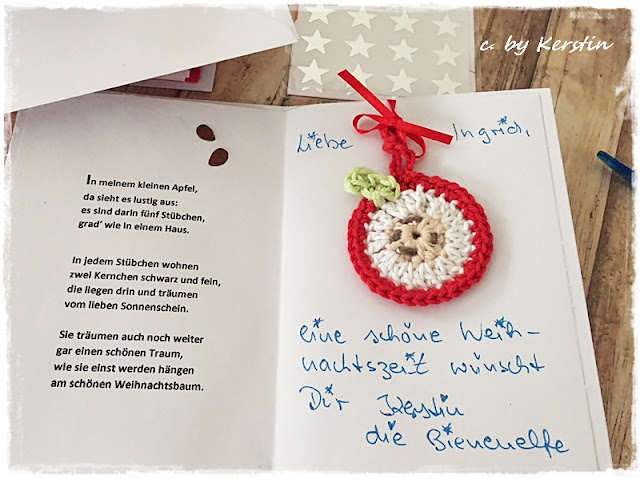 c. by Kerstin
In meinem kleinen Apfel,
da sieht es lustig aus:
es sind darin fünf Stübchen,
grad' wie in einem Haus.
In jedem Stübchen wohnen
zwei Kernchen schwarz und fein,
die liegen drin und träumen
vom lieben Sonnenschein.
Sie träumen auch noch weiter
gar einen schönen Traum,
wie sie einst werden hängen
am schönen Weihnachtsbaum.
Liebe Ingrid,
eine schöne Weih-
nachtszeit wünscht
Dir Kerstin
die Bienenelfe